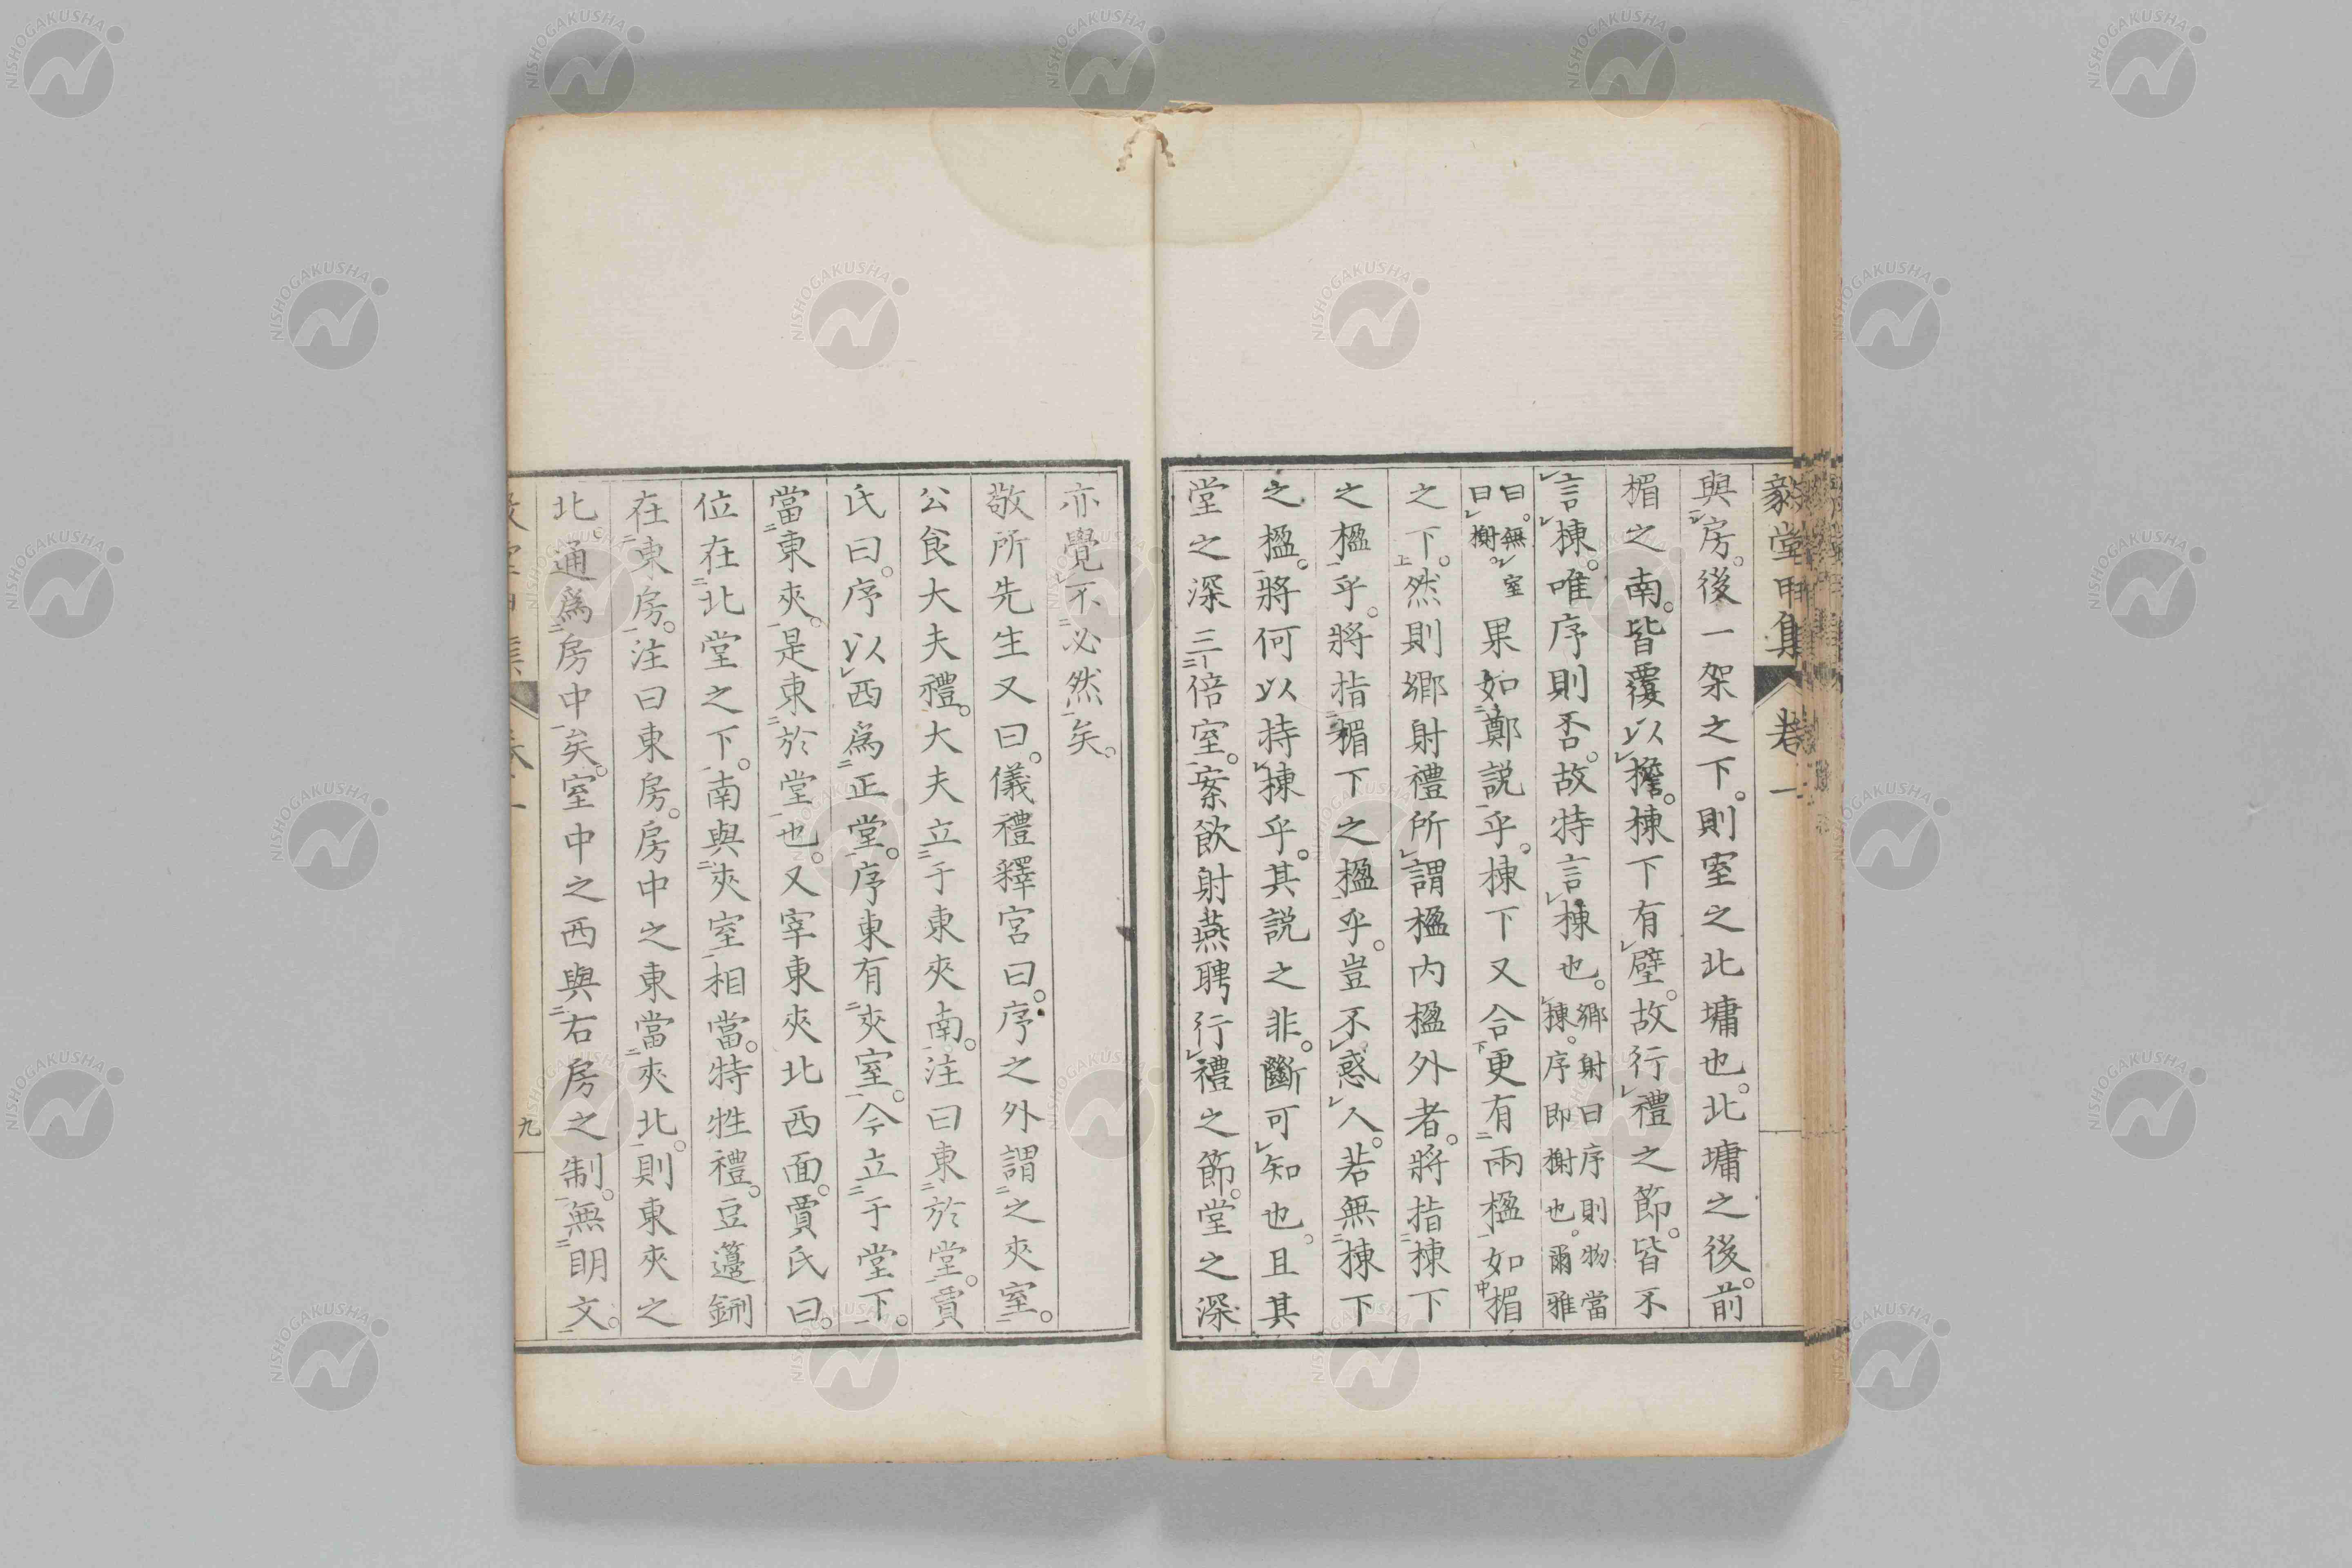 毅堂甲集 卷一
與房。後一架之下。則室之北墉也。北墉之後。前
楣之南。皆覆以檐。棟下有壁。故行禮之節。皆不
言棟。唯序則否。故特言棟也。鄉射曰序則物當棟。序即榭也。爾雅
曰。無室曰榭。果如鄭説乎。棟下又合更有兩楹如楣
之下。然則鄉射禮所謂楹内楹外者。將指棟下
之楹乎。將指楣下之楹乎。豈不惑人。若無棟下
之楹。將何以持棟乎。其説之非。斷可知也。且其
堂之深三倍室。案飲射燕聘行禮之節。堂之深
亦覺不必然矣。
敬所先生又曰。儀禮釋宮曰。序之外謂之夾室。
公食大夫禮。大夫立于東夾南。注曰東於堂。賈
氏曰。序以西爲正堂。序東有夾室。今立于堂下。
當東夾。是東於堂也。又宰東夾北西面。賈氏曰。
位在北堂之下。南與夾室相當。特牲禮。豆籩鉶
在東房。注曰東房。房中之東當夾北。則東夾之
北。通爲房中矣。室中之西與右房之制。無明文。
九
NISHOGAKUSHA